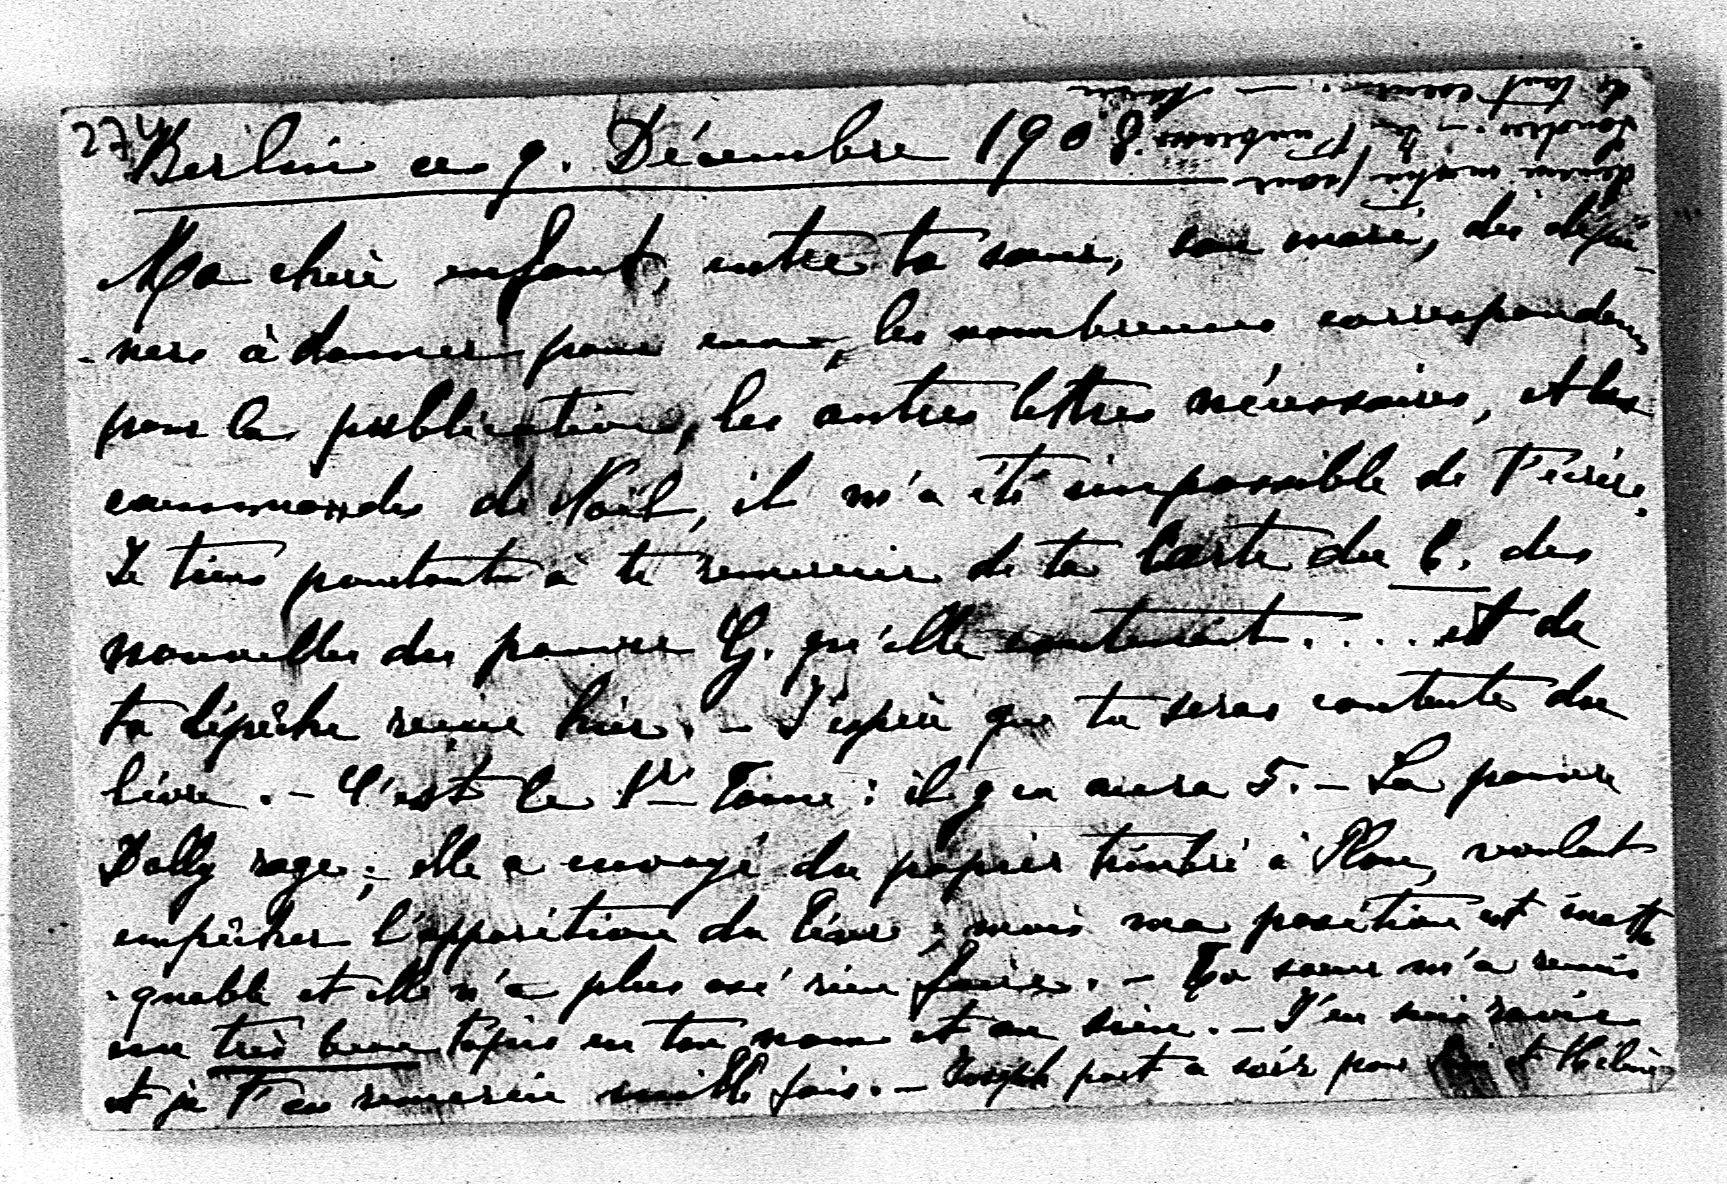 274
Berlin ce 9. Décembre 1908.
Ma chère enfant, entre ta soeur, son mari, des déjeu-
-ners à donner pour eux, les nombreuses correspondances
pour la publication, les autres lettres nécessaires, et les
commandes de Noël, il m'a été impossible de t'écrire.
Je tiens pourtant à te remercier de ta carte du 6. des
nouvelles du pauvre G. qu'elle contenait.... et de
ta dépêche reçue hier. – J'espère que tu seras contente du
livre. – C'est le 1r Tome : il y en aura 5. – La pauvre
Dolly rage; elle a envoyé du papier timbré à Plon, voulant
empêcher l'apparition du livre; mais ma position est inatta-
-quable et elle n'a plus osé rien faire. – Ta soeur m'a remis
un très beau tapis en ton nom et au sien. – J'en suis ravie
et je t'en remercie mille fois. – Joseph part ce soir pour et Hélène
demain matin pour
Londres. – Je t'embrasse
de tout coeur. –